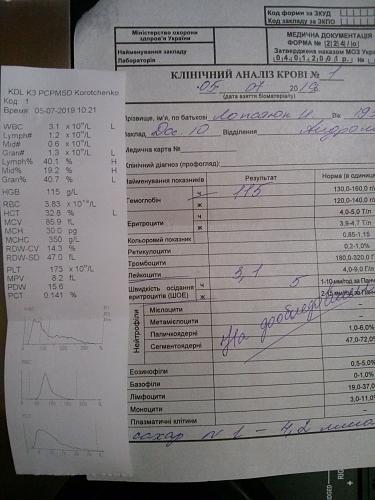 KDL K3 PCPM5D Korotchenko
Код: 1
Время: 05-07-2019 10:21
WBC 3.1 x 10⁹/L L
Lymph# 1.2 x 10⁹/L
Mid# 0.6 x 10⁹/L
Gran# 1.3 x 10⁹/L L
Lymph% 40.1 % H
Mid% 19.2 % H
Gran% 40.7 % L
HGB 115 g/L
RBC 3.83 x 10¹²/L
HCT 32.8 % L
MCV 85.9 fL
MCH 30.0 pg
MCHC 350 g/L
RDW-CV 14.3 %
RDW-SD 47.0 fL
PLT 173 x 10⁹/L
MPV 8.2 fL
PDW 15.6
PCT 0.141 %
WBC
RBC
PLT
Код форми за ЗКУД
Код закладу за ЗКПО
Міністерство охорони
здоров'я України
Найменування закладу
Лабораторія
МЕДИЧНА ДОКУМЕНТАЦІЯ
ФОРМА № 224/о
Затверджена наказом МОЗ Украї
04.01.2001 р. №
КЛІНІЧНИЙ АНАЛІЗ КРОВІ № 1
05 07 2019
(дата взяття біоматеріалу)
Прізвище, ім'я, по батькові
10 Відділення
Медична карта №
Клінічний діагноз (профогляд):
Найменування показників Результат Норма (в одиниц
Гемоглобін ч 115 130,0-160,0 г/л
ж 120,0-140,0 г/
Еритроцити ч 4,0-5,0 Т/л
ж 3,9-4,7 Т/л
Кольоровий показник 0,85-1,15
Ретикулоцити 0,2-1,0%
Тромбоцити 180,0-320,0 Г
Лейкоцити 3,1 4,0-9,0 Г/л
Швидкість осідання
еритроцитів (ШОЕ) ч 5 1-10 мм/год за Панч
ж 2-15 мм/год за Панч
Нейтрофіли
Мієлоцити
Метамієлоцити
Паличкоядерні 1,0-6,0%
Сегментоядерні 47,0-72,0%
На дообследование
Еозинофіли 0,5-5,0%
Базофіли 0-1,0%
Лімфоцити 19,0-37,0
Моноцити 3,0-11,0
Плазматичні клітини
сахар № 1 - 4,2 ммо